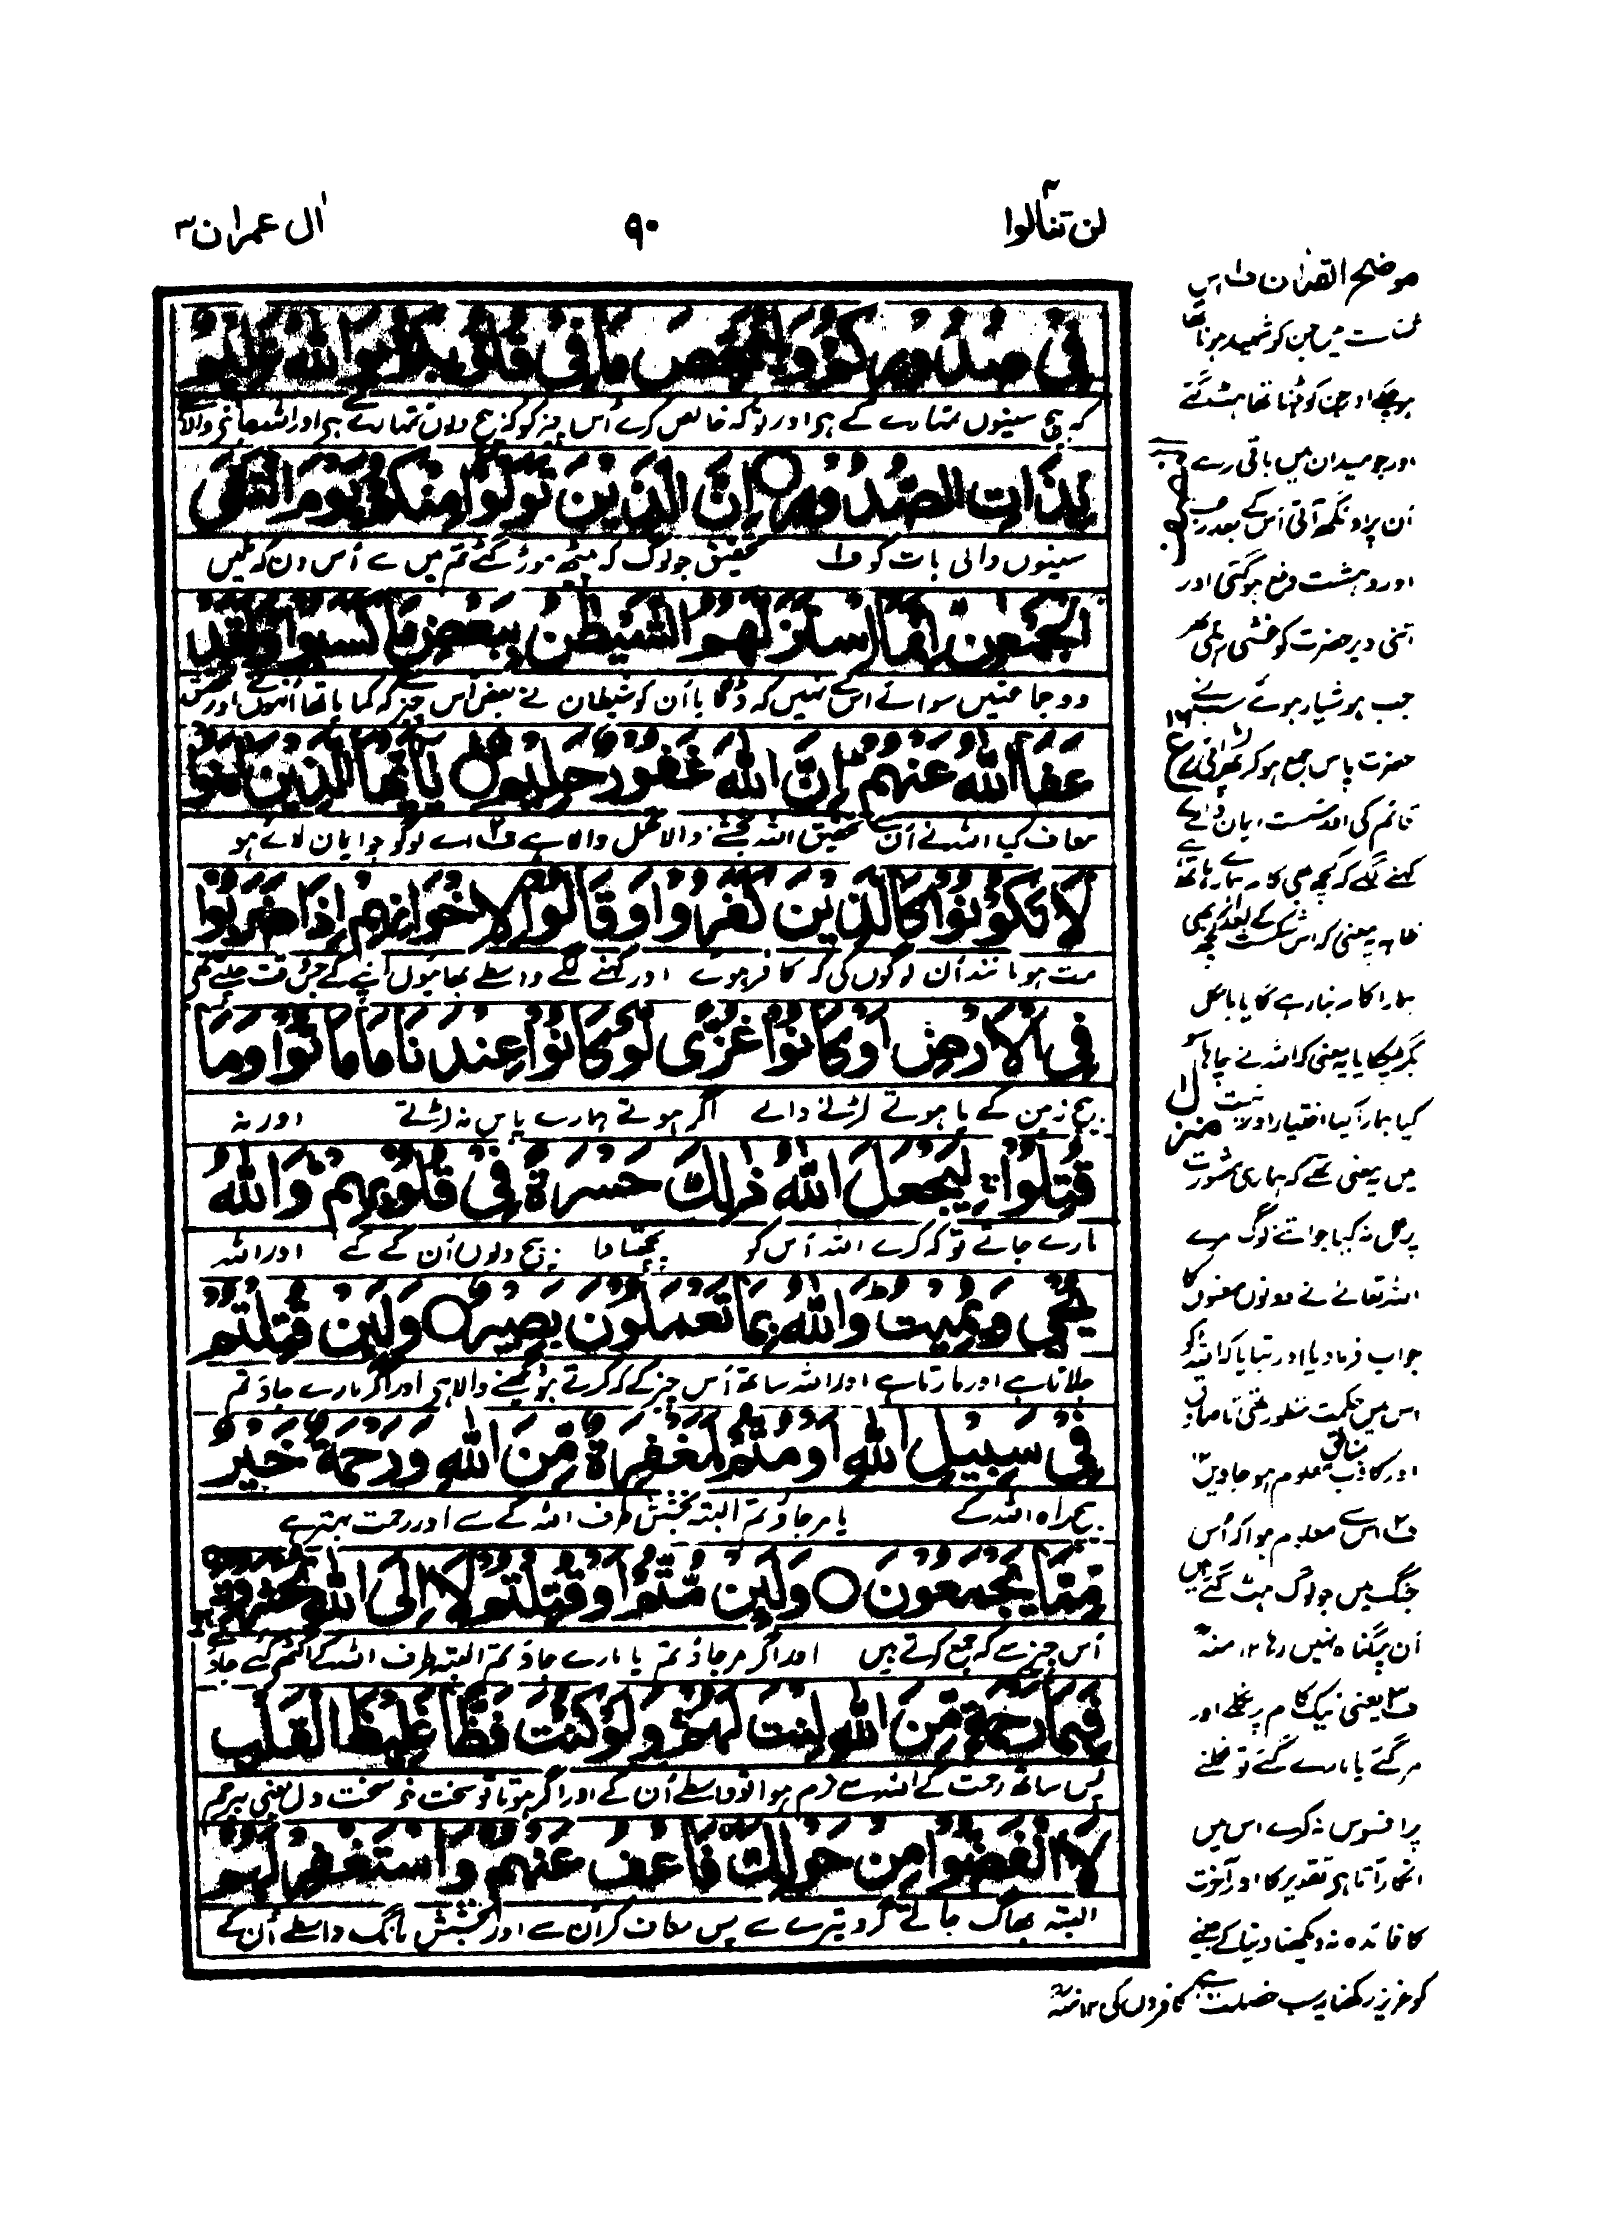 لن تنالوا
۹۰
اٰل عمران ۳
فِیْ صُدُوْرِكُمْ وَلِیُمَحِّصَ مَا فِیْ قُلُوْبِكُمْ وَاللّٰهُ عَلِیْمٌۢ
کہ بیچ سینوں تمہارے کے ہے اور تو کہ خالص کرے اُس چیز کو کہ بیچ دلوں تمہارے ہے اور اللہ جاننے والا ہے
بِذَاتِ الصُّدُوْرِ ○ اِنَّ الَّذِیْنَ تَوَلَّوْا مِنْكُمْ یَوْمَ الْتَقَى
سینوں والی بات کو ف۱ تحقیق جو لوگ کہ پیٹھ موڑ گئے تم میں سے اُس دن کہ ملیں
الْجَمْعٰنِ اِنَّمَا اسْتَزَلَّهُمُ الشَّیْطٰنُ بِبَعْضِ مَا كَسَبُوْا وَلَقَدْ
دو جماعتیں سوائے اس کے نہیں کہ ڈگایا اُن کو شیطان نے بعض اُس چیز کے کہ کمایا تھا اُنہوں نے اور تحقیق
عَفَا اللّٰهُ عَنْهُمْ اِنَّ اللّٰهَ غَفُوْرٌ حَلِیْمٌ ○ یٰۤاَیُّهَا الَّذِیْنَ اٰمَنُوْا
معاف کیا اللہ نے اُن سے تحقیق اللہ بخشنے والا تحمل والا ہے ف۲ اے لوگو جو ایمان لائے ہو
لَا تَكُوْنُوْا كَالَّذِیْنَ كَفَرُوْا وَقَالُوْا لِاِخْوَانِهِمْ اِذَا ضَرَبُوْا
مت ہو مانند اُن لوگوں کی کہ کافر ہوئے اور کہنے لگے واسطے بھائیوں اپنے کے جس وقت چلتے تھے
فِی الْاَرْضِ اَوْ كَانُوْا غُزًّى لَّوْ كَانُوْا عِنْدَنَا مَا مَاتُوْا وَمَا
بیچ زمین کے یا ہوتے لڑنے والے اگر ہوتے ہمارے پاس نہ مرتے اور نہ
قُتِلُوْا لِیَجْعَلَ اللّٰهُ ذٰلِكَ حَسْرَةً فِیْ قُلُوْبِهِمْ وَاللّٰهُ
مارے جاتے تو کہ کرے اللہ اُس کو پچھتاوا بیچ دلوں اُن کے کے اور اللہ
یُحْیٖ وَیُمِیْتُ وَاللّٰهُ بِمَا تَعْمَلُوْنَ بَصِیْرٌ ○ وَلَئِنْ قُتِلْتُمْ
جلاتا ہے اور مارتا ہے اور اللہ ساتھ اُس چیز کے کہ کرتے ہو دیکھنے والا ہے اور اگر مارے جاؤ تم
فِیْ سَبِیْلِ اللّٰهِ اَوْ مُتُّمْ لَمَغْفِرَةٌ مِّنَ اللّٰهِ وَرَحْمَةٌ خَیْرٌ
بیچ راہ اللہ کے یا مر جاؤ تم البتہ بخشش طرف اللہ کے سے اور رحمت بہتر ہے
مِّمَّا یَجْمَعُوْنَ ○ وَلَئِنْ مُّتُّمْ اَوْ قُتِلْتُمْ لَاِلَى اللّٰهِ تُحْشَرُوْنَ
اُس چیز سے کہ جمع کرتے ہیں اور اگر مر جاؤ تم یا مارے جاؤ تم البتہ طرف اللہ کے اکٹھے کئے جاؤ گے
فَبِمَا رَحْمَةٍ مِّنَ اللّٰهِ لِنْتَ لَهُمْ وَلَوْ كُنْتَ فَظًّا غَلِیْظَ الْقَلْبِ
پس ساتھ رحمت کے اللہ سے نرم ہوا تو واسطے اُن کے اور اگر ہوتا تو سخت خو سخت دل یعنی بے رحم
لَا انْفَضُّوْا مِنْ حَوْلِكَ فَاعْفُ عَنْهُمْ وَاسْتَغْفِرْ لَهُمْ
البتہ بھاگ جاتے گرد تیرے سے پس معاف کر اُن سے اور بخشش مانگ واسطے اُن کے
موضح القرآن ف۱ اس
شکست میں جن کو شہید ہونا تھا
ہو چکے اور جن کو ہٹنا تھا ہٹ گئے
اور جو میدان میں باقی رہے
اُن پر اونگھ آئی اُس کے بعد رعب
اور دہشت دفع ہو گئی اور
اتنی دیر حضرت کو غشی رہی پھر
جب ہوشیار ہوئے سب نے
حضرت پاس جمع ہو کر پھر لڑائی
قائم کی اور سست ایمان والے
کہنے لگے کہ کچھ بھی کام ہے ہمارے ہاتھ
ظاہر یہ معنی کہ اس شکست کے بعد کچھ بھی
ہمارا کام بنا رہے گا یا بالکل
بگڑ چکا یا یہ معنی کہ اللہ نے چاہا سو
کیا ہمارا کیا اختیار اور نیت
میں یہ معنی تھے کہ ہماری مشورت
پر عمل نہ کیا جو اتنے لوگ مرے
اللہ تعالے نے دونوں معنوں کا
جواب فرما دیا اور بتایا کہ اللہ کو
اس میں حکمت منظور تھی تا صادق
اور کاذب منافق معلوم ہو جاویں
ف۲ اس سے معلوم ہوا کہ اُس
جنگ میں جو لوگ ہٹ گئے ہیں
اُن پر گناہ نہیں رہا ۱۲ منہ
ف۳ یعنی نیک کام پر نکلے اور
مر گئے یا مارے گئے تو نکلنے
پر افسوس نہ کرے اس میں
انکار آتا ہے تقدیر کا اور آخرت
کا فائدہ نہ دیکھنا دنیا کے جینے
کو عزیز رکھنا یہ سب خصلت ہے کافروں کی ۱۲ منہ